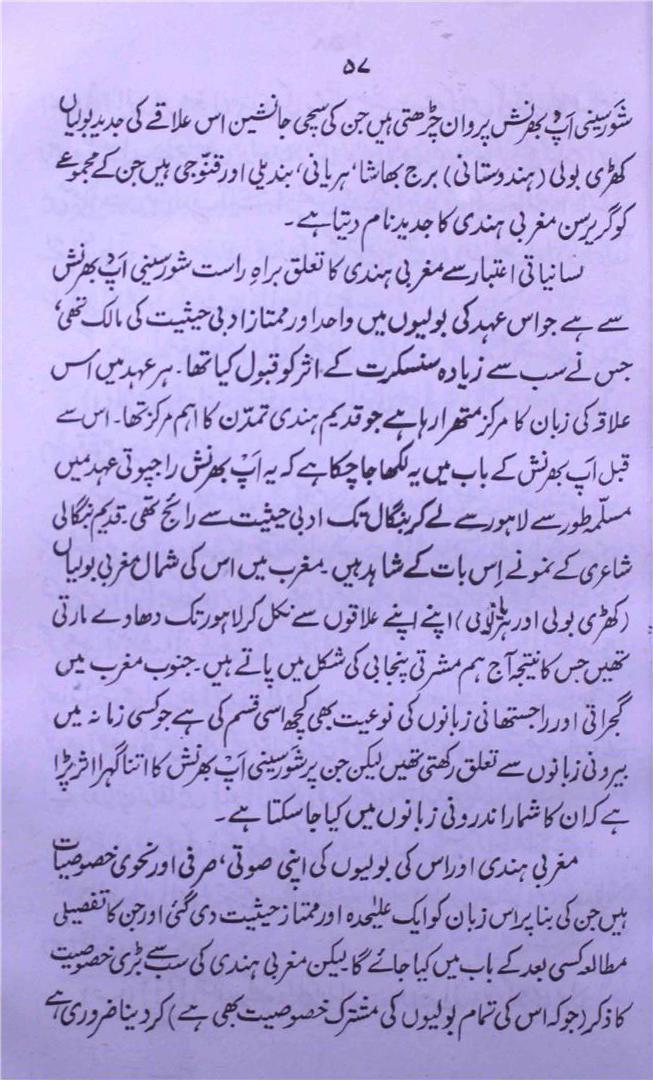 ۵۷
شورسینی اَپ بھرنش پروان چڑھتی ہیں جن کی سچی جانشین اس علاقے کی جدید بولیاں
کھڑی بولی (ہندوستانی) برج بھاشا، ہریانی، بندیلی اور قنوّجی ہیں جن کے مجموعے
کو گریرسن مغربی ہندی کا جدید نام دیتا ہے۔
لسانیاتی اعتبار سے مغربی ہندی کا تعلق براہِ راست شورسینی اَپ بھرنش
سے ہے جو اس عہد کی بولیوں میں واحد اور ممتاز ادبی حیثیت کی مالک تھی،
جس نے سب سے زیادہ سنسکرت کے اثر کو قبول کیا تھا۔ ہر عہد میں اس
علاقہ کی زبان کا مرکز متھرا رہا ہے جو قدیم ہندی تمدّن کا اہم مرکز تھا۔ اس سے
قبل اَپ بھرنش کے باب میں یہ لکھا جا چکا ہے کہ یہ اَپ بھرنش راجپوتی عہد میں
مسلّمہ طور سے لاہور سے لے کر بنگال تک ادبی حیثیت سے رائج تھی۔ قدیم بنگالی
شاعری کے نمونے اِس بات کے شاہد ہیں۔ مغرب میں اس کی شمال مغربی بولیاں
(کھڑی بولی اور ہریانی) اپنے اپنے علاقوں سے نکل کر لاہور تک دھاوے مارتی
تھیں جس کا نتیجہ آج ہم مشرقی پنجابی کی شکل میں پاتے ہیں۔ جنوب مغرب میں
گجراتی اور راجستھانی زبانوں کی نوعیت بھی کچھ اسی قسم کی ہے جو کسی زمانہ میں
بیرونی زبانوں سے تعلق رکھتی تھیں لیکن جن پر شورسینی اَپ بھرنش کا اتنا گہرا اثر پڑا
ہے کہ ان کا شمار اندرونی زبانوں میں کیا جا سکتا ہے۔
مغربی ہندی اور اس کی بولیوں کی اپنی صوتی، صرفی اور نحوی خصوصیات
ہیں جن کی بنا پر اس زبان کو ایک علیٰحدہ اور ممتاز حیثیت دی گئی اور جن کا تفصیلی
مطالعہ کسی بعد کے باب میں کیا جائے گا۔ لیکن مغربی ہندی کی سب سے بڑی خصوصیت
کا ذکر (جو کہ اس کی تمام بولیوں کی مشترک خصوصیت بھی ہے) کر دینا ضروری ہے